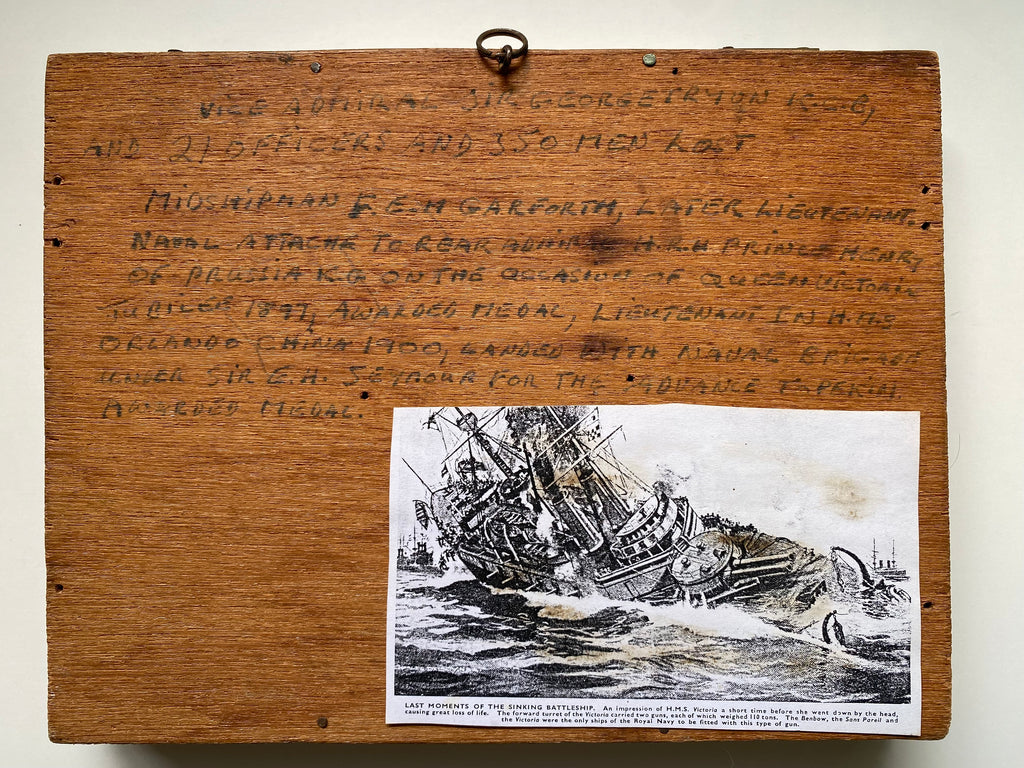 VICE ADMIRAL SIR GEORGE TRYON K.C.B,
AND 21 OFFICERS AND 350 MEN LOST
MIDSHIPMAN F.E.M GARFORTH, LATER LIEUTENANT.
NAVAL ATTACHE TO REAR ADMIRAL H.R.H PRINCE HENRY
OF PRUSSIA K.G ON THE OCCASION OF QUEEN VICTORIA
JUBILEE 1897, AWARDED MEDAL, LIEUTENANT IN H.M.S
ORLANDO CHINA 1900, LANDED WITH NAVAL BRIGADE
UNDER SIR E.H. SEYMOUR FOR THE ADVANCE T. PEKIN.
AWARDED MEDAL.
LAST MOMENTS OF THE SINKING BATTLESHIP. An impression of H.M.S. Victoria a short time before she went down by the head,
causing great loss of life. The forward turret of the Victoria carried two guns, each of which weighed 110 tons. The Benbow, the Sans Pareil and
the Victoria were the only ships of the Royal Navy to be fitted with this type of gun.